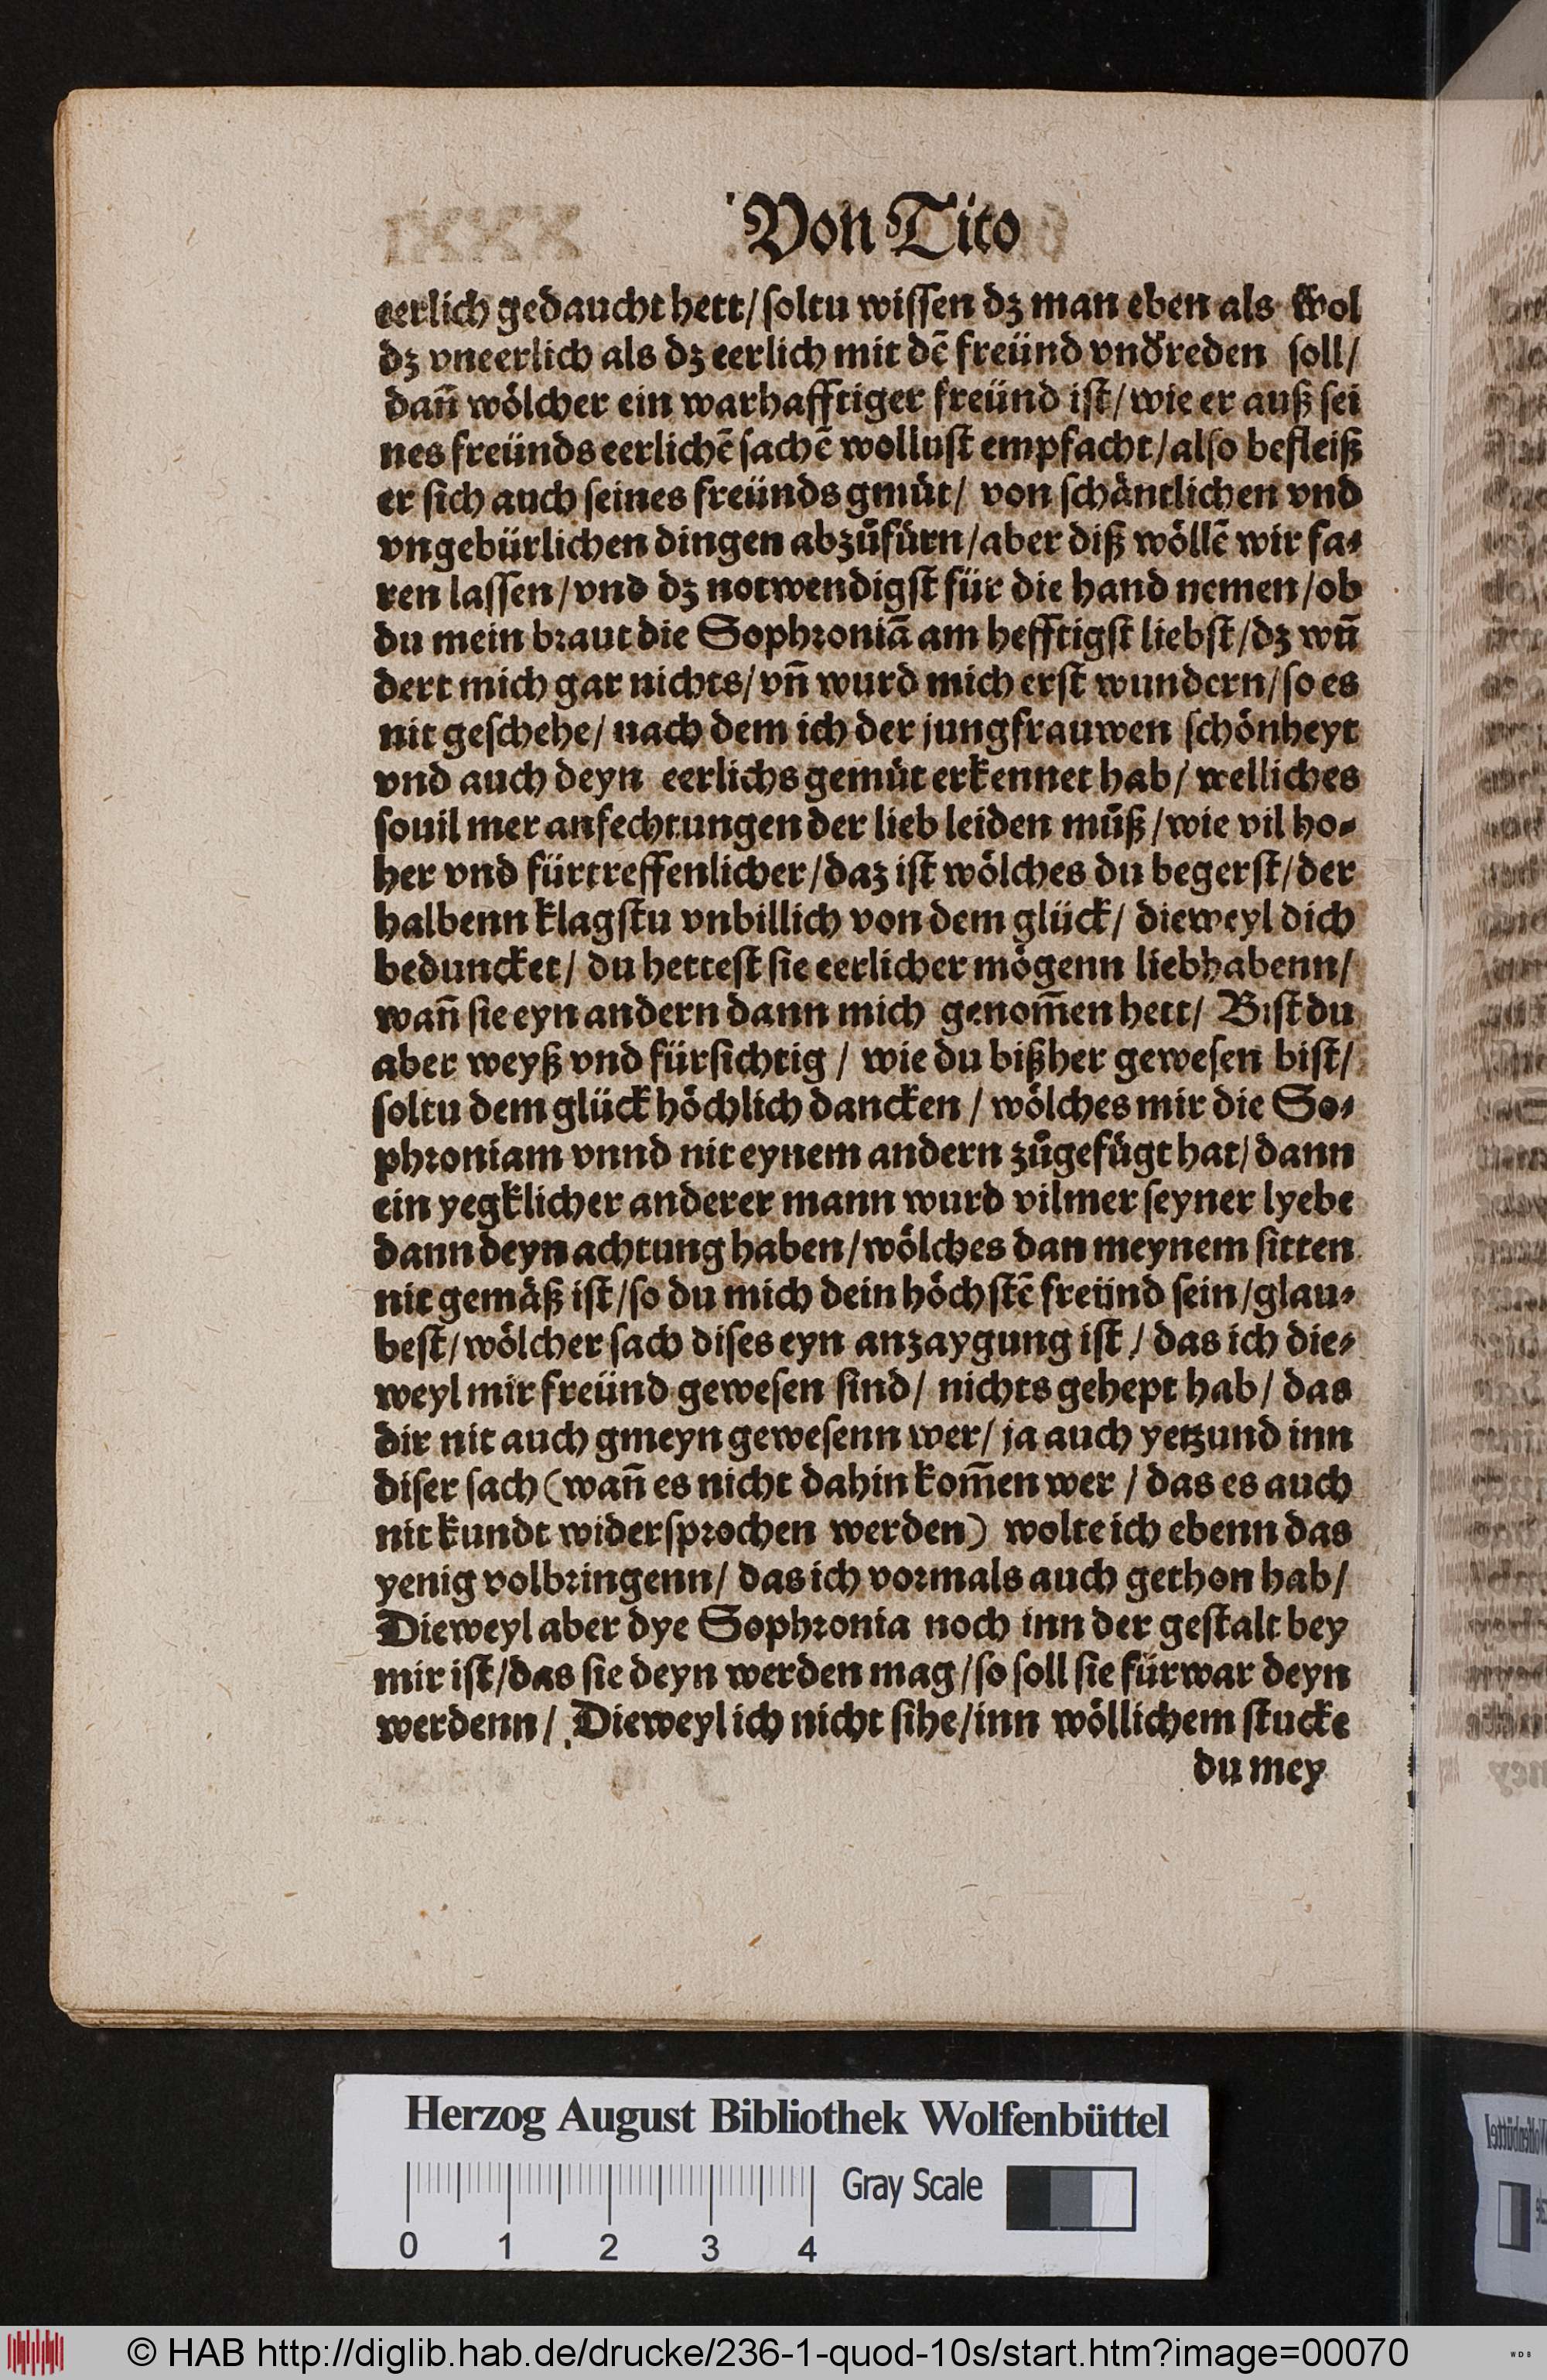 Von Tito
eerlich gedaucht hett/ ſoltu wiſſen dz man eben als wol
dz vneerlich als dz eerlich mit dẽ freünd vnd̕reden ſoll/
dañ wölcher ein warhafftiger freünd iſt/ wie er auß ſei
nes freünds eerlichẽ ſachẽ wolluſt empfacht/ alſo befleiß
er ſich auch ſeines freünds gmüt/ von ſchäntlichen vnd
vngebürlichen dingen abzůfürn/ aber diß wöllẽ wir fa⸗
ren laſſen/ vnd dz notwendigſt für die hand nemen/ ob
du mein braut die Sophroniã am hefftigſt liebſt/ dz wũ
dert mich gar nichts/ vñ wurd mich erſt wundern/ ſo es
nit geſchehe/ nach dem ich der jungfrauwen ſchönheyt
vnd auch deyn eerlichs gemüt erkennet hab/ welliches
ſouil mer anfechtungen der lieb leiden můß/ wie vil ho⸗
her vnd fürtreffenlicher/ daz iſt wölches du begerſt/ der
halbenn klagſtu vnbillich von dem glück/ dieweyl dich
beduncket/ du hetteſt ſie eerlicher mögenn liebhabenn/
wañ ſie eyn andern dann mich genom̃en hett/ Biſt du
aber weyß vnd fürſichtig/ wie du bißher geweſen biſt/
ſoltu dem glück höchlich dancken/ wölches mir die So⸗
phroniam vnnd nit eynem andern zůgefügt hat/ dann
ein yegklicher anderer mann wurd vilmer ſeyner lyebe
dann deyn achtung haben/ wölches dan meynem ſitten
nit gemäß iſt/ ſo du mich dein höchſtẽ freünd ſein/ glau⸗
beſt/ wölcher ſach diſes eyn anzaygung iſt/ das ich die⸗
weyl mir freünd geweſen ſind/ nichts gehept hab/ das
dir nit auch gmeyn geweſenn wer/ ja auch yetzund inn
diſer ſach (wañ es nicht dahin kom̃en wer/ das es auch
nit kundt widerſprochen werden) wolte ich ebenn das
yenig volbringenn/ das ich vormals auch gethon hab/
Dieweyl aber dye Sophronia noch inn der geſtalt bey
mir iſt/ das ſie deyn werden mag/ ſo ſoll ſie fürwar deyn
werdenn/ Dieweyl ich nicht ſihe/ inn wöllichem ſtucke
du mey
Herzog August Bibliothek Wolfenbüttel
Gray Scale
0 1 2 3 4
© HAB http://diglib.hab.de/drucke/236-1-quod-10s/start.htm?image=00070
WDB